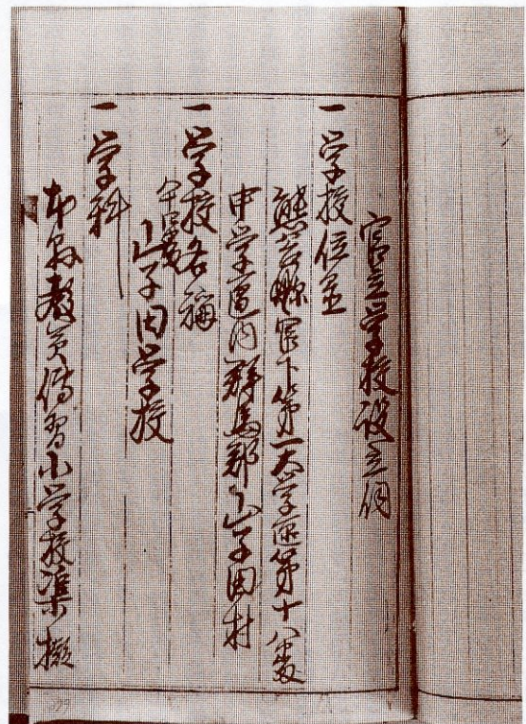 官立学校設立伺
一 学校位置
熊谷縣管下第一大学区第十八番
中学区内群馬郡山子田村
一 学校名称
山子田学校
一 学科
本県教員傳習小学校ニ擬